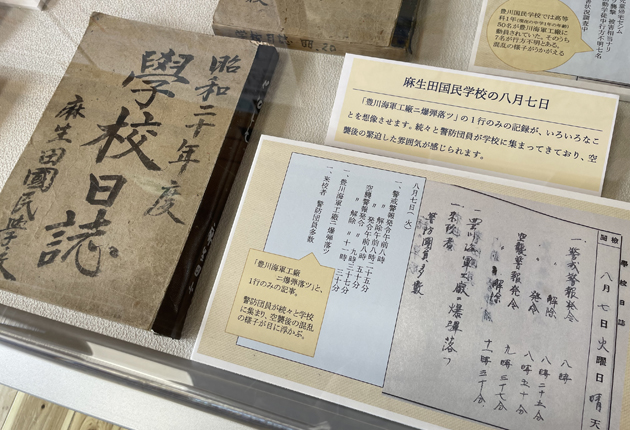 昭和二十年度
學校日誌
麻生田國民學校
豊川国民学校では高等
科1年(現在の中学1年の年齢)
50名が豊川海軍工廠に
動員されていた。そのうち
7名が行方不明とある。
混乱の様子がうかがえる
麻生田国民学校の八月七日
「豊川海軍工廠ニ爆弾落ツ」の1行のみの記録が、いろいろなこ
とを想像させます。続々と警防団員が学校に集まってきており、空
襲後の緊迫した雰囲気が感じられます。
八月七日(火)
一、警戒警報発令午前八時
〃 解除午前八時二十五分
〃 発令午前八時五十分
空襲警報発令 〃 九時三十七分
〃 解除 〃 十一時三十分
一、豊川海軍工廠ニ爆弾落ツ
一、来校者 警防団員多数
「豊川海軍工廠
ニ爆弾落ツ」と、
1行のみの記事。
警防団員が続々と学校
に集まり、空襲後の混乱
の様子が目に浮かぶ。
學校日誌
八月七日火曜日晴天
一、警戒警報発令 八時
〃 解除 八時二十五分
〃 発令 八時五十分
空襲警報発令 九時三十七分
〃 解除 十一時三十分
一、豊川海軍工廠ニ爆弾落ツ
一、来校者
警防團員多数